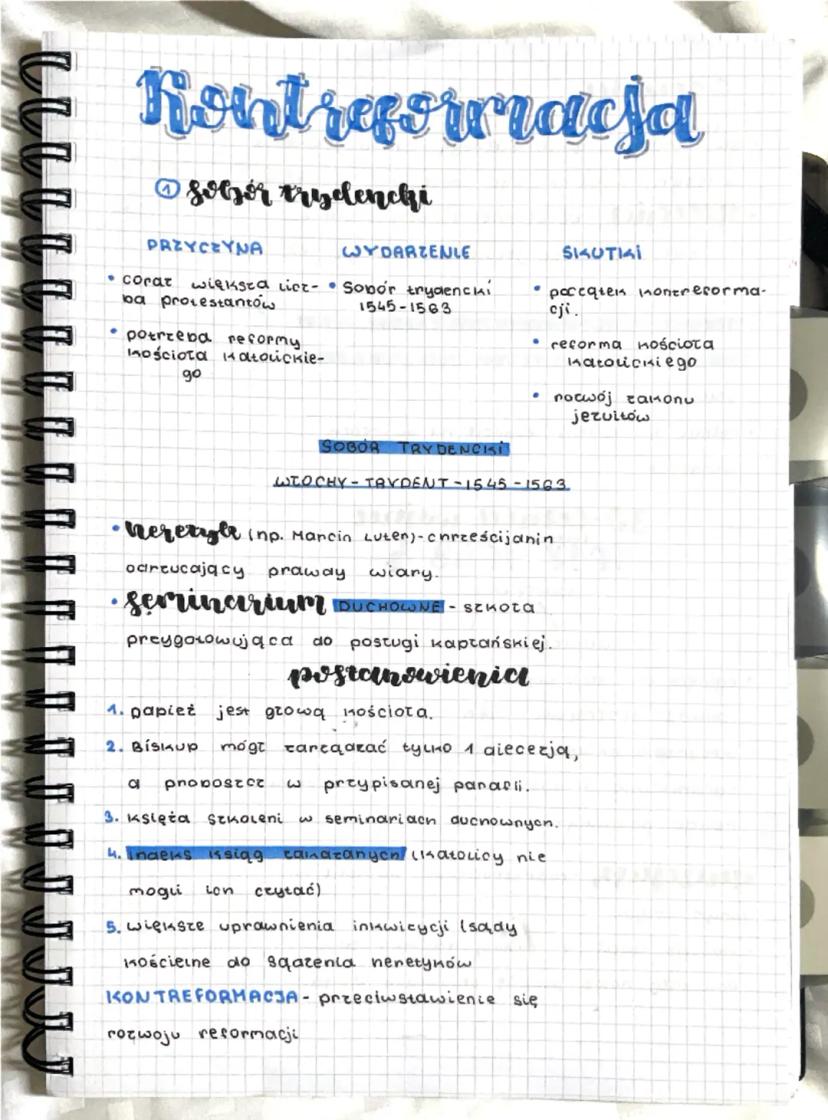 Kontreformacja
1 Sobór trydencki
PRZYCZYNA
WYDARZENIE
SKUTKI
• coraz większa licz-
ba protestantów
• potrzeba reformy
kościoła katolickie-
go
• Sobór trydencki
1545-1563
• początek kontreforma-
cji.
• reforma kościoła
katolickiego
• rozwój zakonu
jezuitów
SOBÓR TRYDENCKI
WŁOCHY - TRYDENT - 1545 - 1563
• heretyk (np. Marcin Luter) - chrześcijanin
odrzucający prawdy wiary.
• seminarium DUCHOWNE - szkoła
przygotowująca do posługi kapłańskiej.
postanowienia
1. papież jest głową kościoła.
2. Biskup mógł zarządzać tylko 1 diecezją,
a proboszcz w przypisanej parafii.
3. księża szkoleni w seminariach duchownych.
4. Indeks ksiąg zakazanych (katolicy nie
mogli ich czytać)
5. większe uprawnienia inkwizycji (sądy
kościelne do sądzenia heretyków
KONTREFORMACJA - przeciwstawienie się
rozwoju reformacji